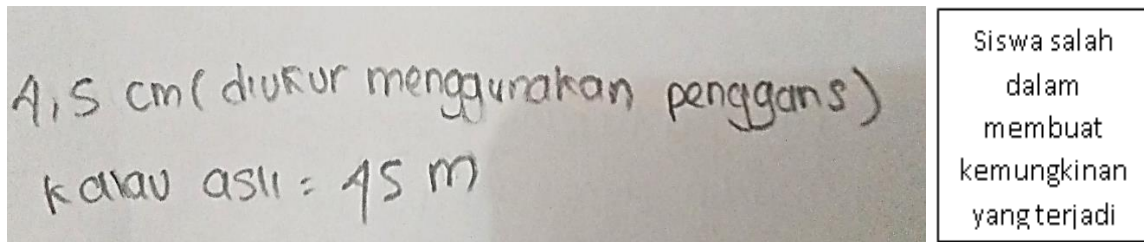 4,5 cm (diukur menggunakan penggans)
kalau asli = 45 m
Siswa salah
dalam
membuat
kemungkinan
yang terjadi